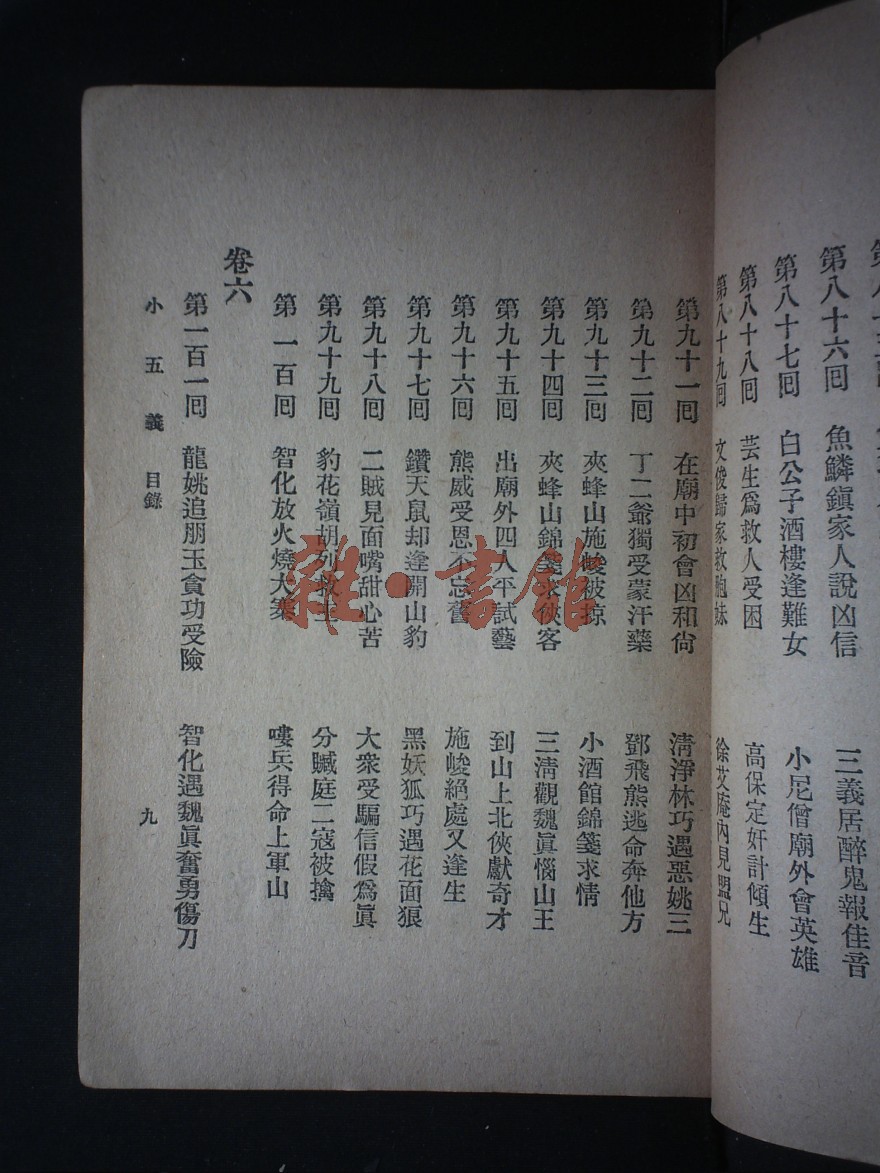 第八十六回 魚鱗鎮家人說凶信 三義居醉鬼報佳音
第八十七回 白公子酒樓逢難女 小尼僧廟外會英雄
第八十八回 芸生爲救人受困 高保定奸計傾生
第八十九回 文俊歸家救胞妹 徐艾庵內見盟兄
第九十一回 在廟中初會凶和尙 清淨林巧遇惡姚三
第九十二回 丁二爺獨受蒙汗藥 鄧飛熊逃命奔他方
第九十三回 夾蜂山施峻被掠 小酒館錦箋求情
第九十四回 夾蜂山錦箋求俠客 三清觀魏眞惱山王
第九十五回 出廟外四人平試藝 到山上北俠獻奇才
第九十六回 熊威受恩不忘舊 施峻絕處又逢生
第九十七回 鑽天鼠却逢開山豹 黑妖狐巧遇花面狼
第九十八回 二賊見面嘴甜心苦 大衆受騙信假爲眞
第九十九回 豹花嶺胡列救主 分贓庭二寇被擒
第一百回 智化放火燒大寨 嘍兵得命上軍山
卷六
第一百一回 龍姚追朋玉貪功受險 智化遇魏眞奮勇傷刀
小五義 目錄 九
雜·書館